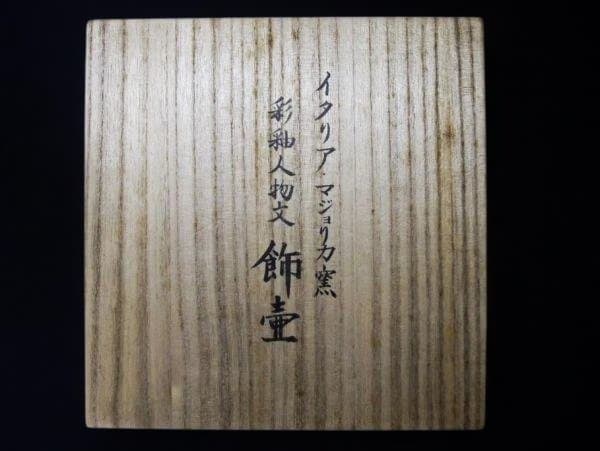 イタリア・マジョリカ窯
彩釉人物文 飾壷